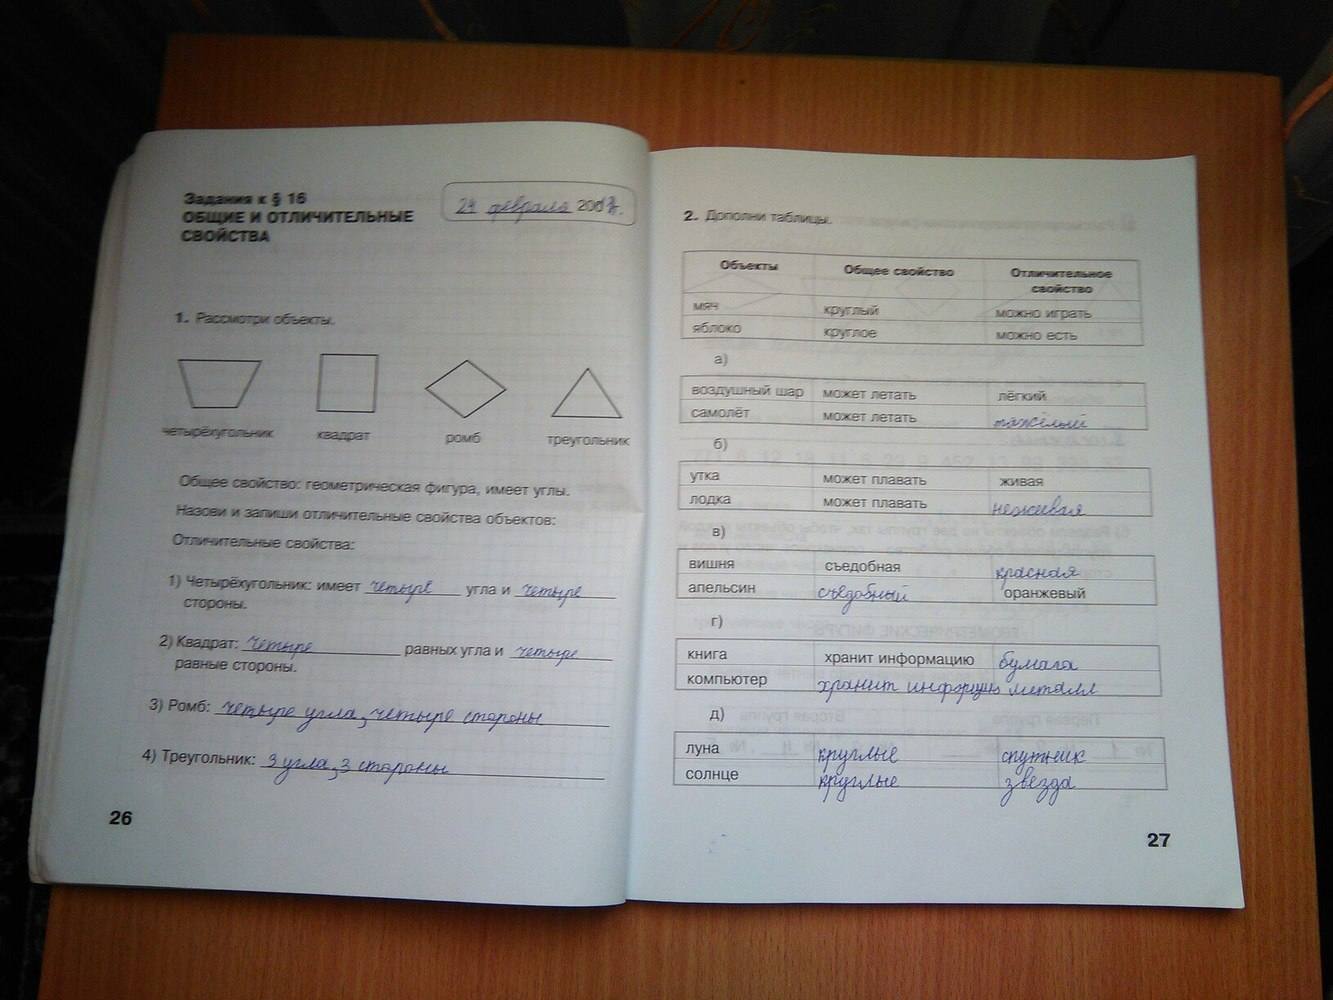 Задания к § 16
ОБЩИЕ И ОТЛИЧИТЕЛЬНЫЕ
СВОЙСТВА
24 февраля 200
1. Рассмотри объекты.
четырёхугольник квадрат ромб треугольник
Общее свойство: геометрическая фигура, имеет углы.
Назови и запиши отличительные свойства объектов:
Отличительные свойства:
1) Четырёхугольник: имеет четыре угла и четыре
стороны.
2) Квадрат: четыре равных угла и четыре
равные стороны.
3) Ромб: четыре угла, четыре стороны
4) Треугольник: 3 угла, 3 стороны
26
2. Дополни таблицы.
Объекты Общее свойство Отличительное
свойство
мяч круглый можно играть
яблоко круглое можно есть
а)
воздушный шар может летать лёгкий
самолёт может летать тяжёлый
б)
утка может плавать живая
лодка может плавать неживая
в)
вишня съедобная красная
апельсин съедобный оранжевый
г)
книга хранит информацию бумага
компьютер хранит металл
д)
луна круглые спутник
солнце круглые звезда
27